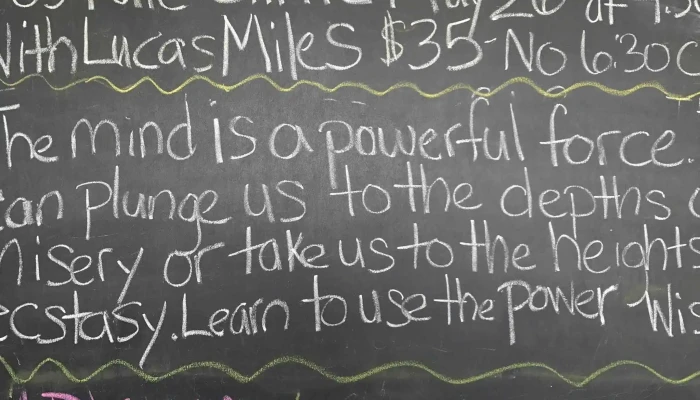 With Lucas Miles $35- No 6:30
The mind is a powerful force.
can plunge us to the depths
Misery or take us to the heights
ecstasy. Learn to use the power